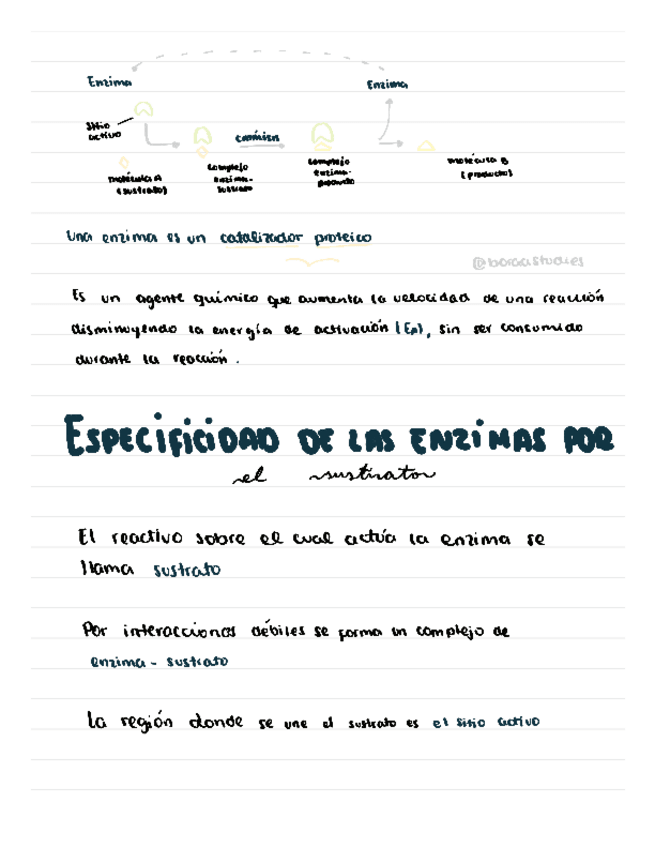 Enzima
Enzima
sitio
activo
catálisis
molécula A
(sustrato)
complejo
enzima-
sustrato
complejo
enzima-
producto
molécula B
(producto)
Una enzima es un catalizador proteico
Es un agente químico que aumenta la velocidad de una reacción
disminuyendo la energía de activación (EA), sin ser consumido
durante la reacción.
ESPECIFICIDAD DE LAS ENZIMAS POR
el sustrato
El reactivo sobre el cual actúa la enzima se
llama sustrato
Por interacciones débiles se forma un complejo de
enzima - sustrato
La región donde se une el sustrato es el sitio activo